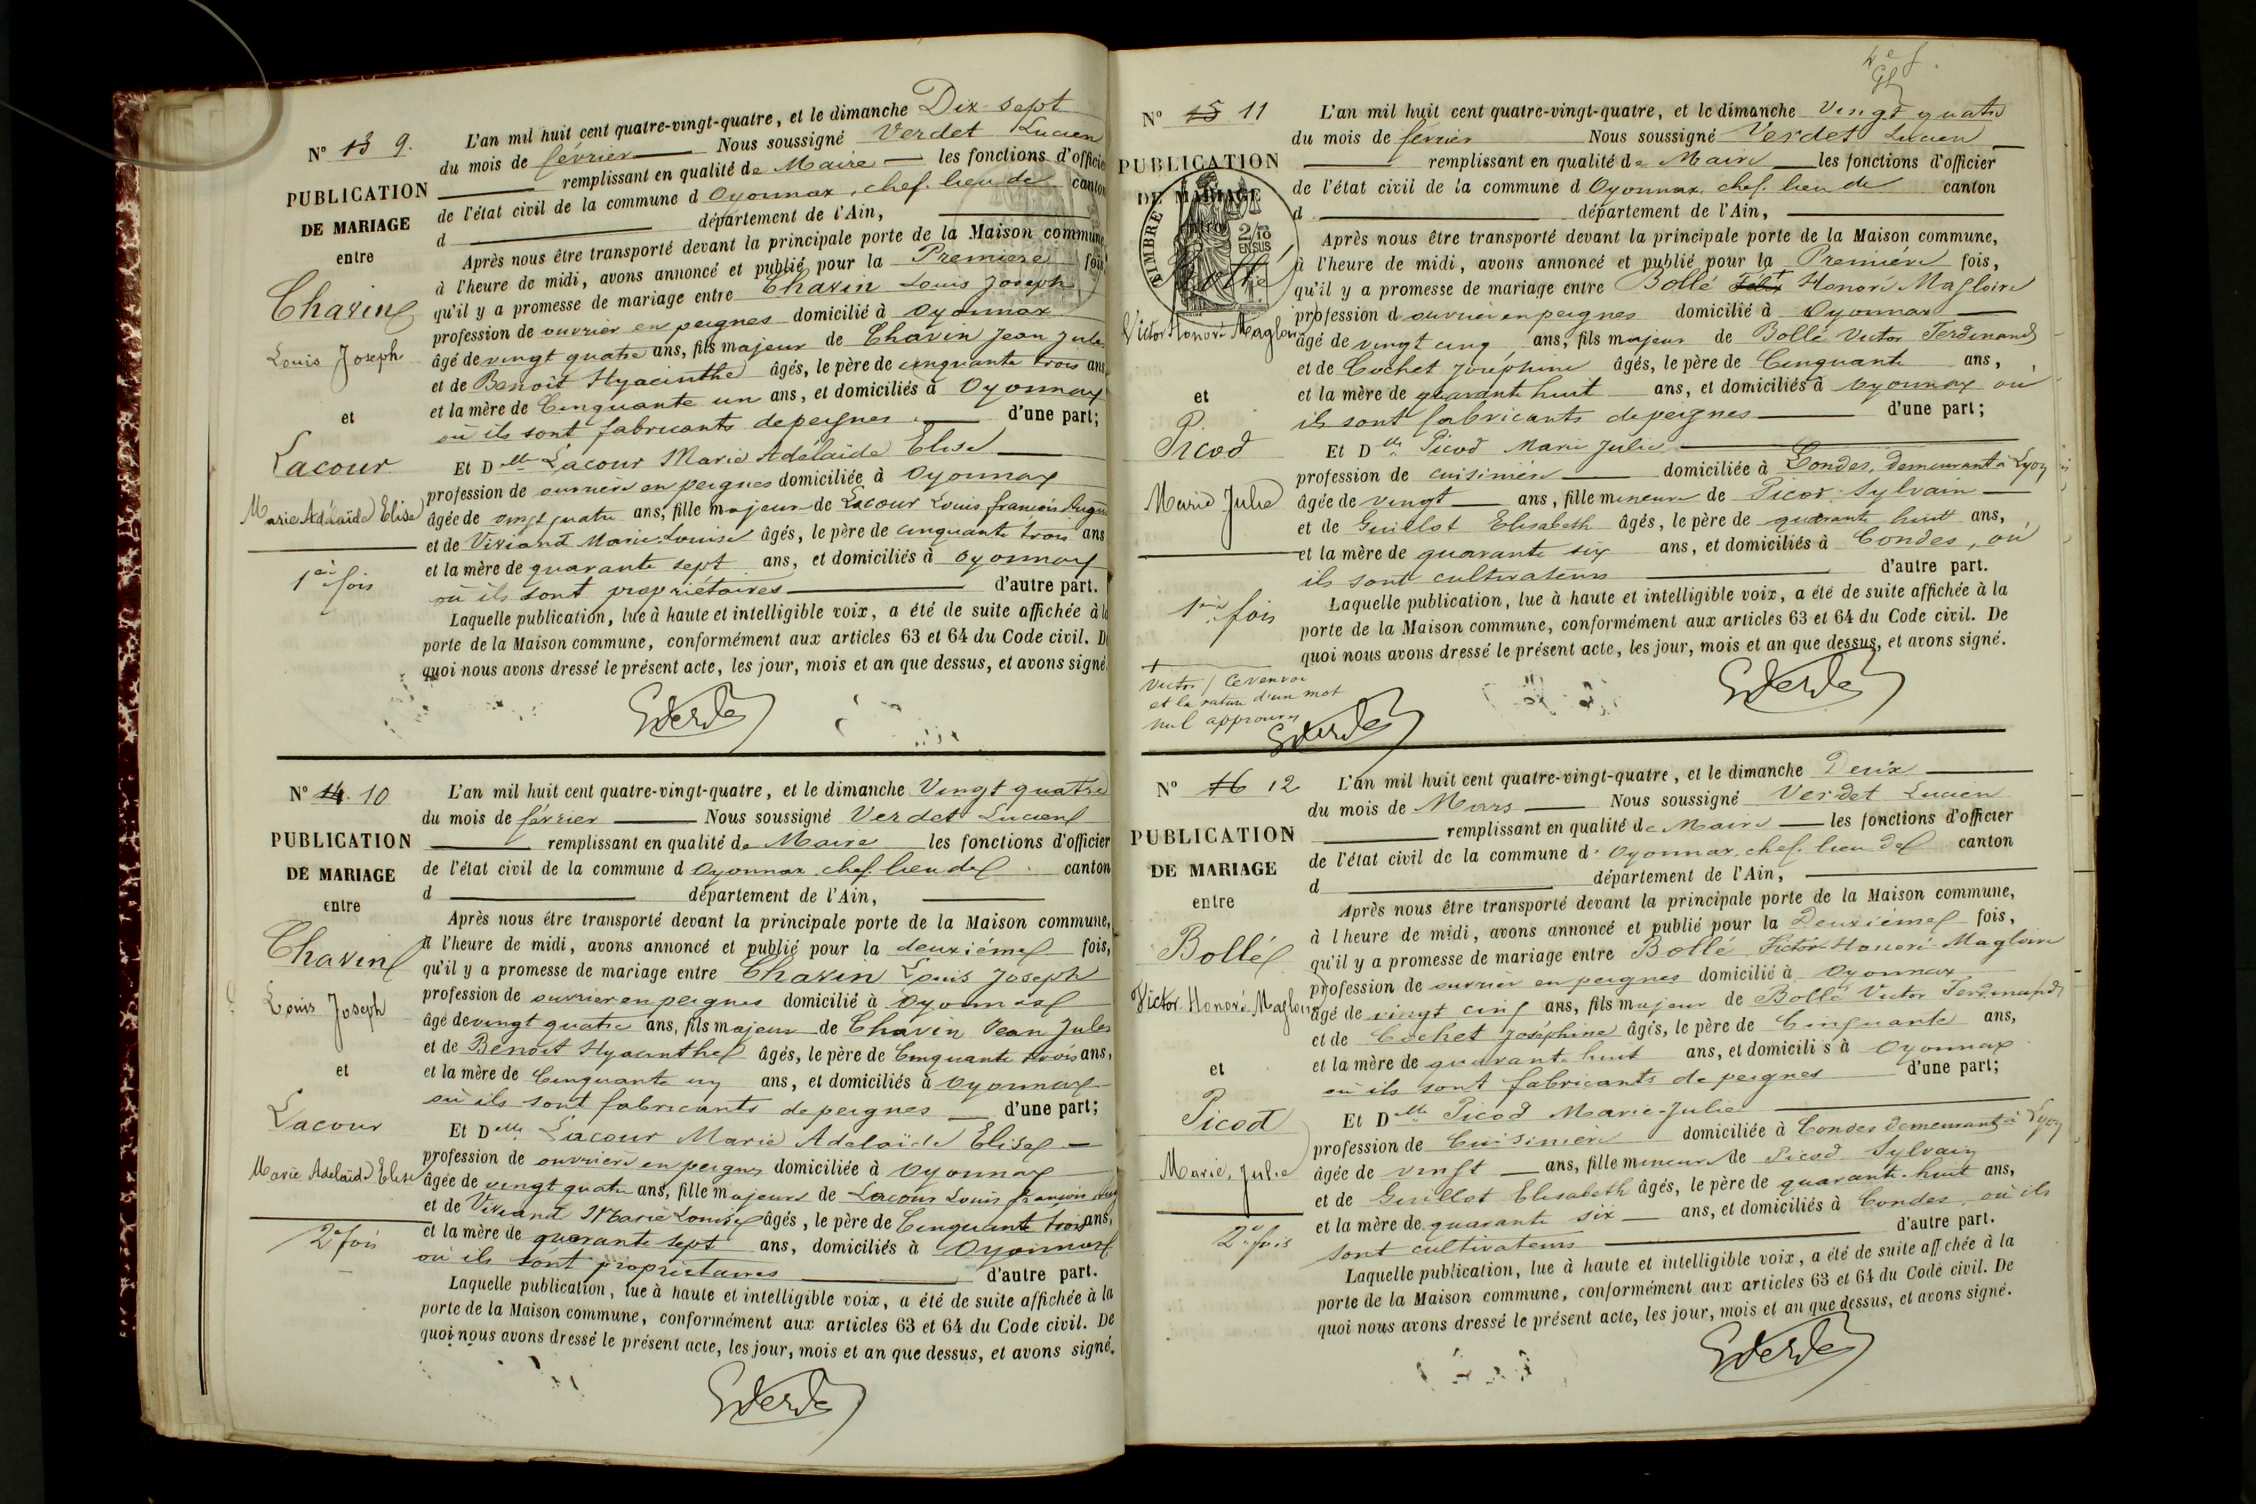 N° 13 9.
PUBLICATION
DE MARIAGE
entre
Chavin
Louis Joseph
et
Lacour
Marie Adélaïde Elise
1ère fois
L'an mil huit cent quatre-vingt-quatre, et le dimanche Dix-sept
du mois de février Nous soussigné Verdet Lucien
remplissant en qualité de Maire les fonctions d'officier
de l'état civil de la commune d Oyonnax, chef-lieu de canton
d département de l'Ain,
Après nous être transporté devant la principale porte de la Maison commune,
à l'heure de midi, avons annoncé et publié pour la Première fois,
qu'il y a promesse de mariage entre Chavin Louis Joseph
profession de ouvrier en peignes domicilié à Oyonnax
âgé de vingt quatre ans, fils majeur de Chavin Jean Jules
et de Benoit Hyacinthe âgés, le père de cinquante trois ans
et la mère de Cinquante un ans, et domiciliés à Oyonnax
où ils sont fabricants de peignes d'une part;
Et Delle Lacour Marie Adelaïde Elise
profession de ouvrière en peignes domiciliée à Oyonnax
âgée de vingt quatre ans, fille majeure de Lacour Louis françois
et de Viviand Marie Louise âgés, le père de cinquante trois ans
et la mère de quarante sept ans, et domiciliés à Oyonnax
où ils sont propriétaires d'autre part.
Laquelle publication, lue à haute et intelligible voix, a été de suite affichée à la
porte de la Maison commune, conformément aux articles 63 et 64 du Code civil. De
quoi nous avons dressé le présent acte, les jour, mois et an que dessus, et avons signé.
Verdet
N° 14. 10
PUBLICATION
DE MARIAGE
entre
Chavin
Louis Joseph
et
Lacour
Marie Adelaïde Elise
2e fois
L'an mil huit cent quatre-vingt-quatre, et le dimanche Vingt quatre
du mois de février Nous soussigné Verdet Lucien
remplissant en qualité de Maire les fonctions d'officier
de l'état civil de la commune d Oyonnax chef-lieu de canton
d département de l'Ain,
Après nous être transporté devant la principale porte de la Maison commune,
à l'heure de midi, avons annoncé et publié pour la deuxième fois,
qu'il y a promesse de mariage entre Chavin Louis Joseph
profession de ouvrier en peignes domicilié à Oyonnax
âgé de vingt quatre ans, fils majeur de Chavin Jean Jules
et de Benoit Hyacinthe âgés, le père de Cinquante trois ans,
et la mère de Cinquante un ans, et domiciliés à Oyonnax
où ils sont fabricants de peignes d'une part;
Et Delle Lacour Marie Adelaïde Elise
profession de ouvrière en peignes domiciliée à Oyonnax
âgée de vingt quatre ans, fille majeure de Lacour Louis françois
et de Viviand Marie Louise âgés, le père de Cinquante trois ans,
et la mère de quarante sept ans, domiciliés à Oyonnax
où ils sont propriétaires d'autre part.
Laquelle publication, lue à haute et intelligible voix, a été de suite affichée à la
porte de la Maison commune, conformément aux articles 63 et 64 du Code civil. De
quoi nous avons dressé le présent acte, les jour, mois et an que dessus, et avons signé.
Verdet
4e f.
N° 15 11
PUBLICATION
DE MARIAGE
entre
TIMBRE
2/10
EN SUS
Bollé
Victor Honoré Magloire
et
Picod
Marie Julie
1ère fois
Victor / Ce renvoi
et la rature d'un mot
nul approuvés
Verdet
L'an mil huit cent quatre-vingt-quatre, et le dimanche Vingt quatre
du mois de février Nous soussigné Verdet Lucien
remplissant en qualité de Maire les fonctions d'officier
de l'état civil de la commune d Oyonnax, chef-lieu de canton
d département de l'Ain,
Après nous être transporté devant la principale porte de la Maison commune,
à l'heure de midi, avons annoncé et publié pour la Première fois,
qu'il y a promesse de mariage entre Bollé Honoré Magloire
profession d ouvrier en peignes domicilié à Oyonnax
âgé de vingt cinq ans, fils majeur de Bollé Victor Ferdinand
et de Cochet Joséphine âgés, le père de Cinquante ans,
et la mère de quarante huit ans, et domiciliés à Oyonnax où
ils sont fabricants de peignes d'une part;
Et Delle Picod Marie Julie
profession de cuisinière domiciliée à Condes, demeurant à Lyon
âgée de vingt ans, fille mineure de Picod Sylvain
et de Guillot Elisabeth âgés, le père de quarante huit ans,
et la mère de quarante six ans, et domiciliés à Condes, où
ils sont cultivateurs d'autre part.
Laquelle publication, lue à haute et intelligible voix, a été de suite affichée à la
porte de la Maison commune, conformément aux articles 63 et 64 du Code civil. De
quoi nous avons dressé le présent acte, les jour, mois et an que dessus, et avons signé.
Verdet
N° 16 12
PUBLICATION
DE MARIAGE
entre
Bollé
Victor Honoré Magloire
et
Picod
Marie Julie
2e fois
L'an mil huit cent quatre-vingt-quatre, et le dimanche Deux
du mois de Mars Nous soussigné Verdet Lucien
remplissant en qualité de Maire les fonctions d'officier
de l'état civil de la commune d' Oyonnax, chef-lieu de canton
d département de l'Ain,
Après nous être transporté devant la principale porte de la Maison commune,
à l heure de midi, avons annoncé et publié pour la Deuxième fois,
qu'il y a promesse de mariage entre Bollé Victor-Honoré-Magloire
profession de ouvrier en peignes domicilié à Oyonnax
âgé de vingt cinq ans, fils majeur de Bollé Victor Ferdinand
et de Cochet Joséphine âgés, le père de Cinquante ans,
et la mère de quarante huit ans, et domicili s à Oyonnax
où ils sont fabricants de peignes d'une part;
Et Delle Picod Marie-Julie
profession de Cuisinière domiciliée à Condes demeurant à Lyon
âgée de vingt ans, fille mineure de Picod Sylvain
et de Guillot Elisabeth âgés, le père de quarante-huit ans,
et la mère de quarante six ans, et domiciliés à Condes où ils
sont cultivateurs d'autre part.
Laquelle publication, lue à haute et intelligible voix, a été de suite aff chée à la
porte de la Maison commune, conformément aux articles 63 et 64 du Code civil. De
quoi nous avons dressé le présent acte, les jour, mois et an que dessus, et avons signé.
Verdet